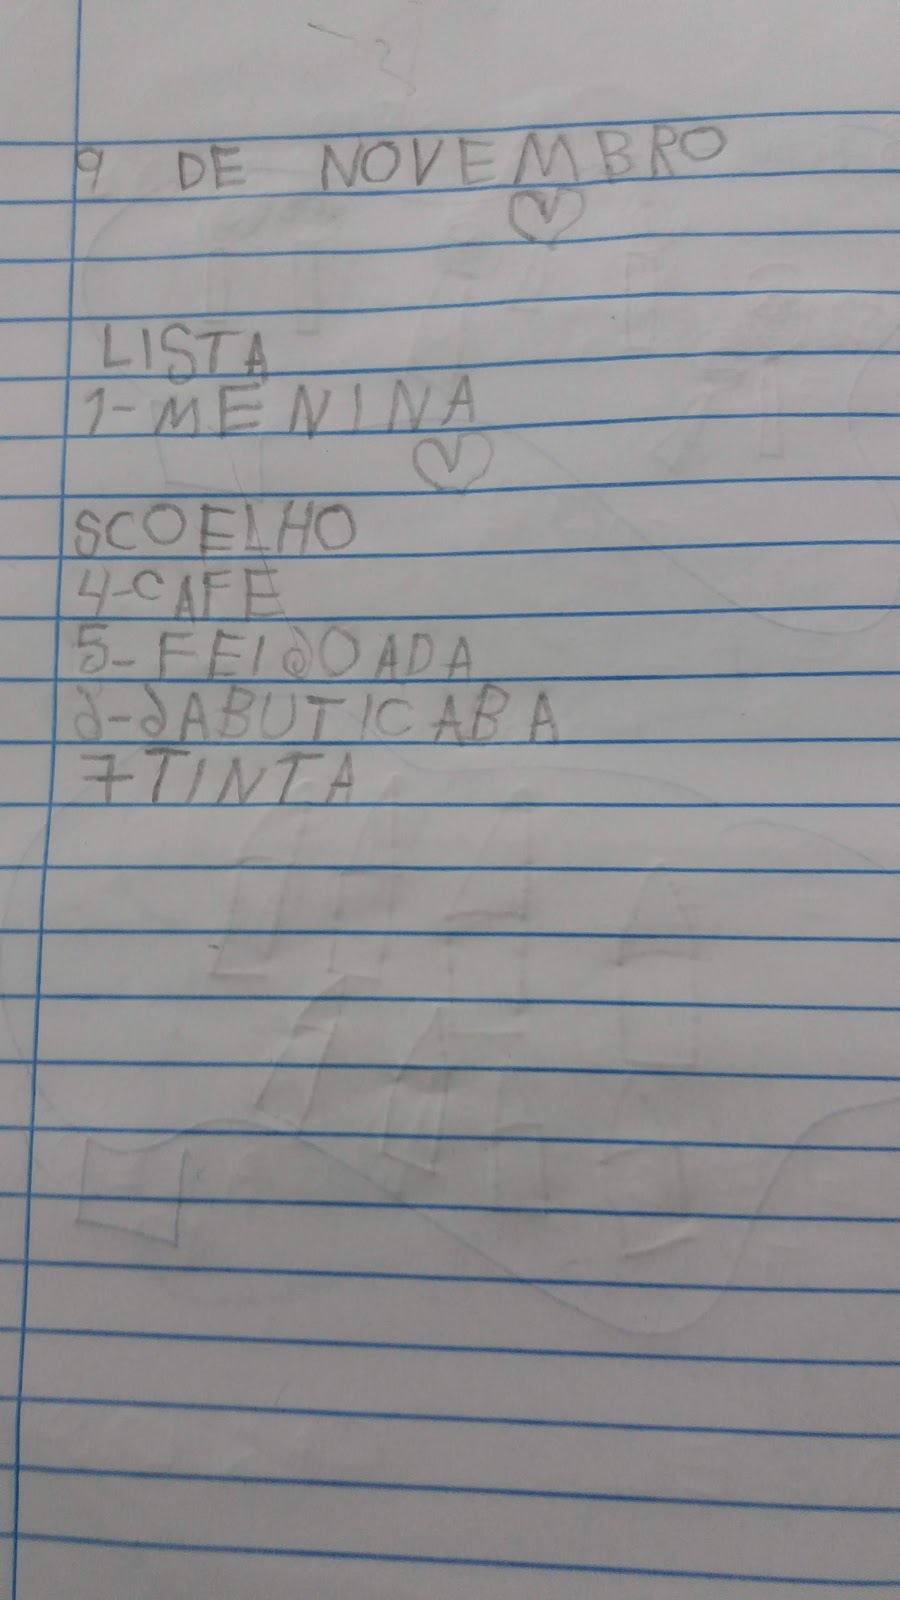 9 DE NOVEMBRO
LISTA
1-MENINA
SCOELHO
4-CAFE
5-FEIJOADA
J-JABUTICABA
7TINTA